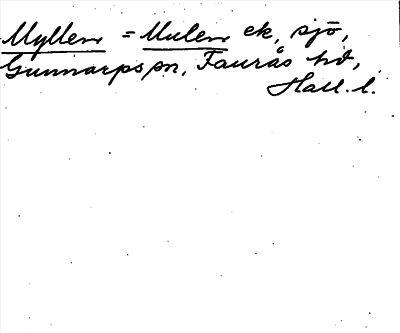 Myllen = Mulen ek, sjö,
Gunnarps sn, Faurås hd,
Hall. l.